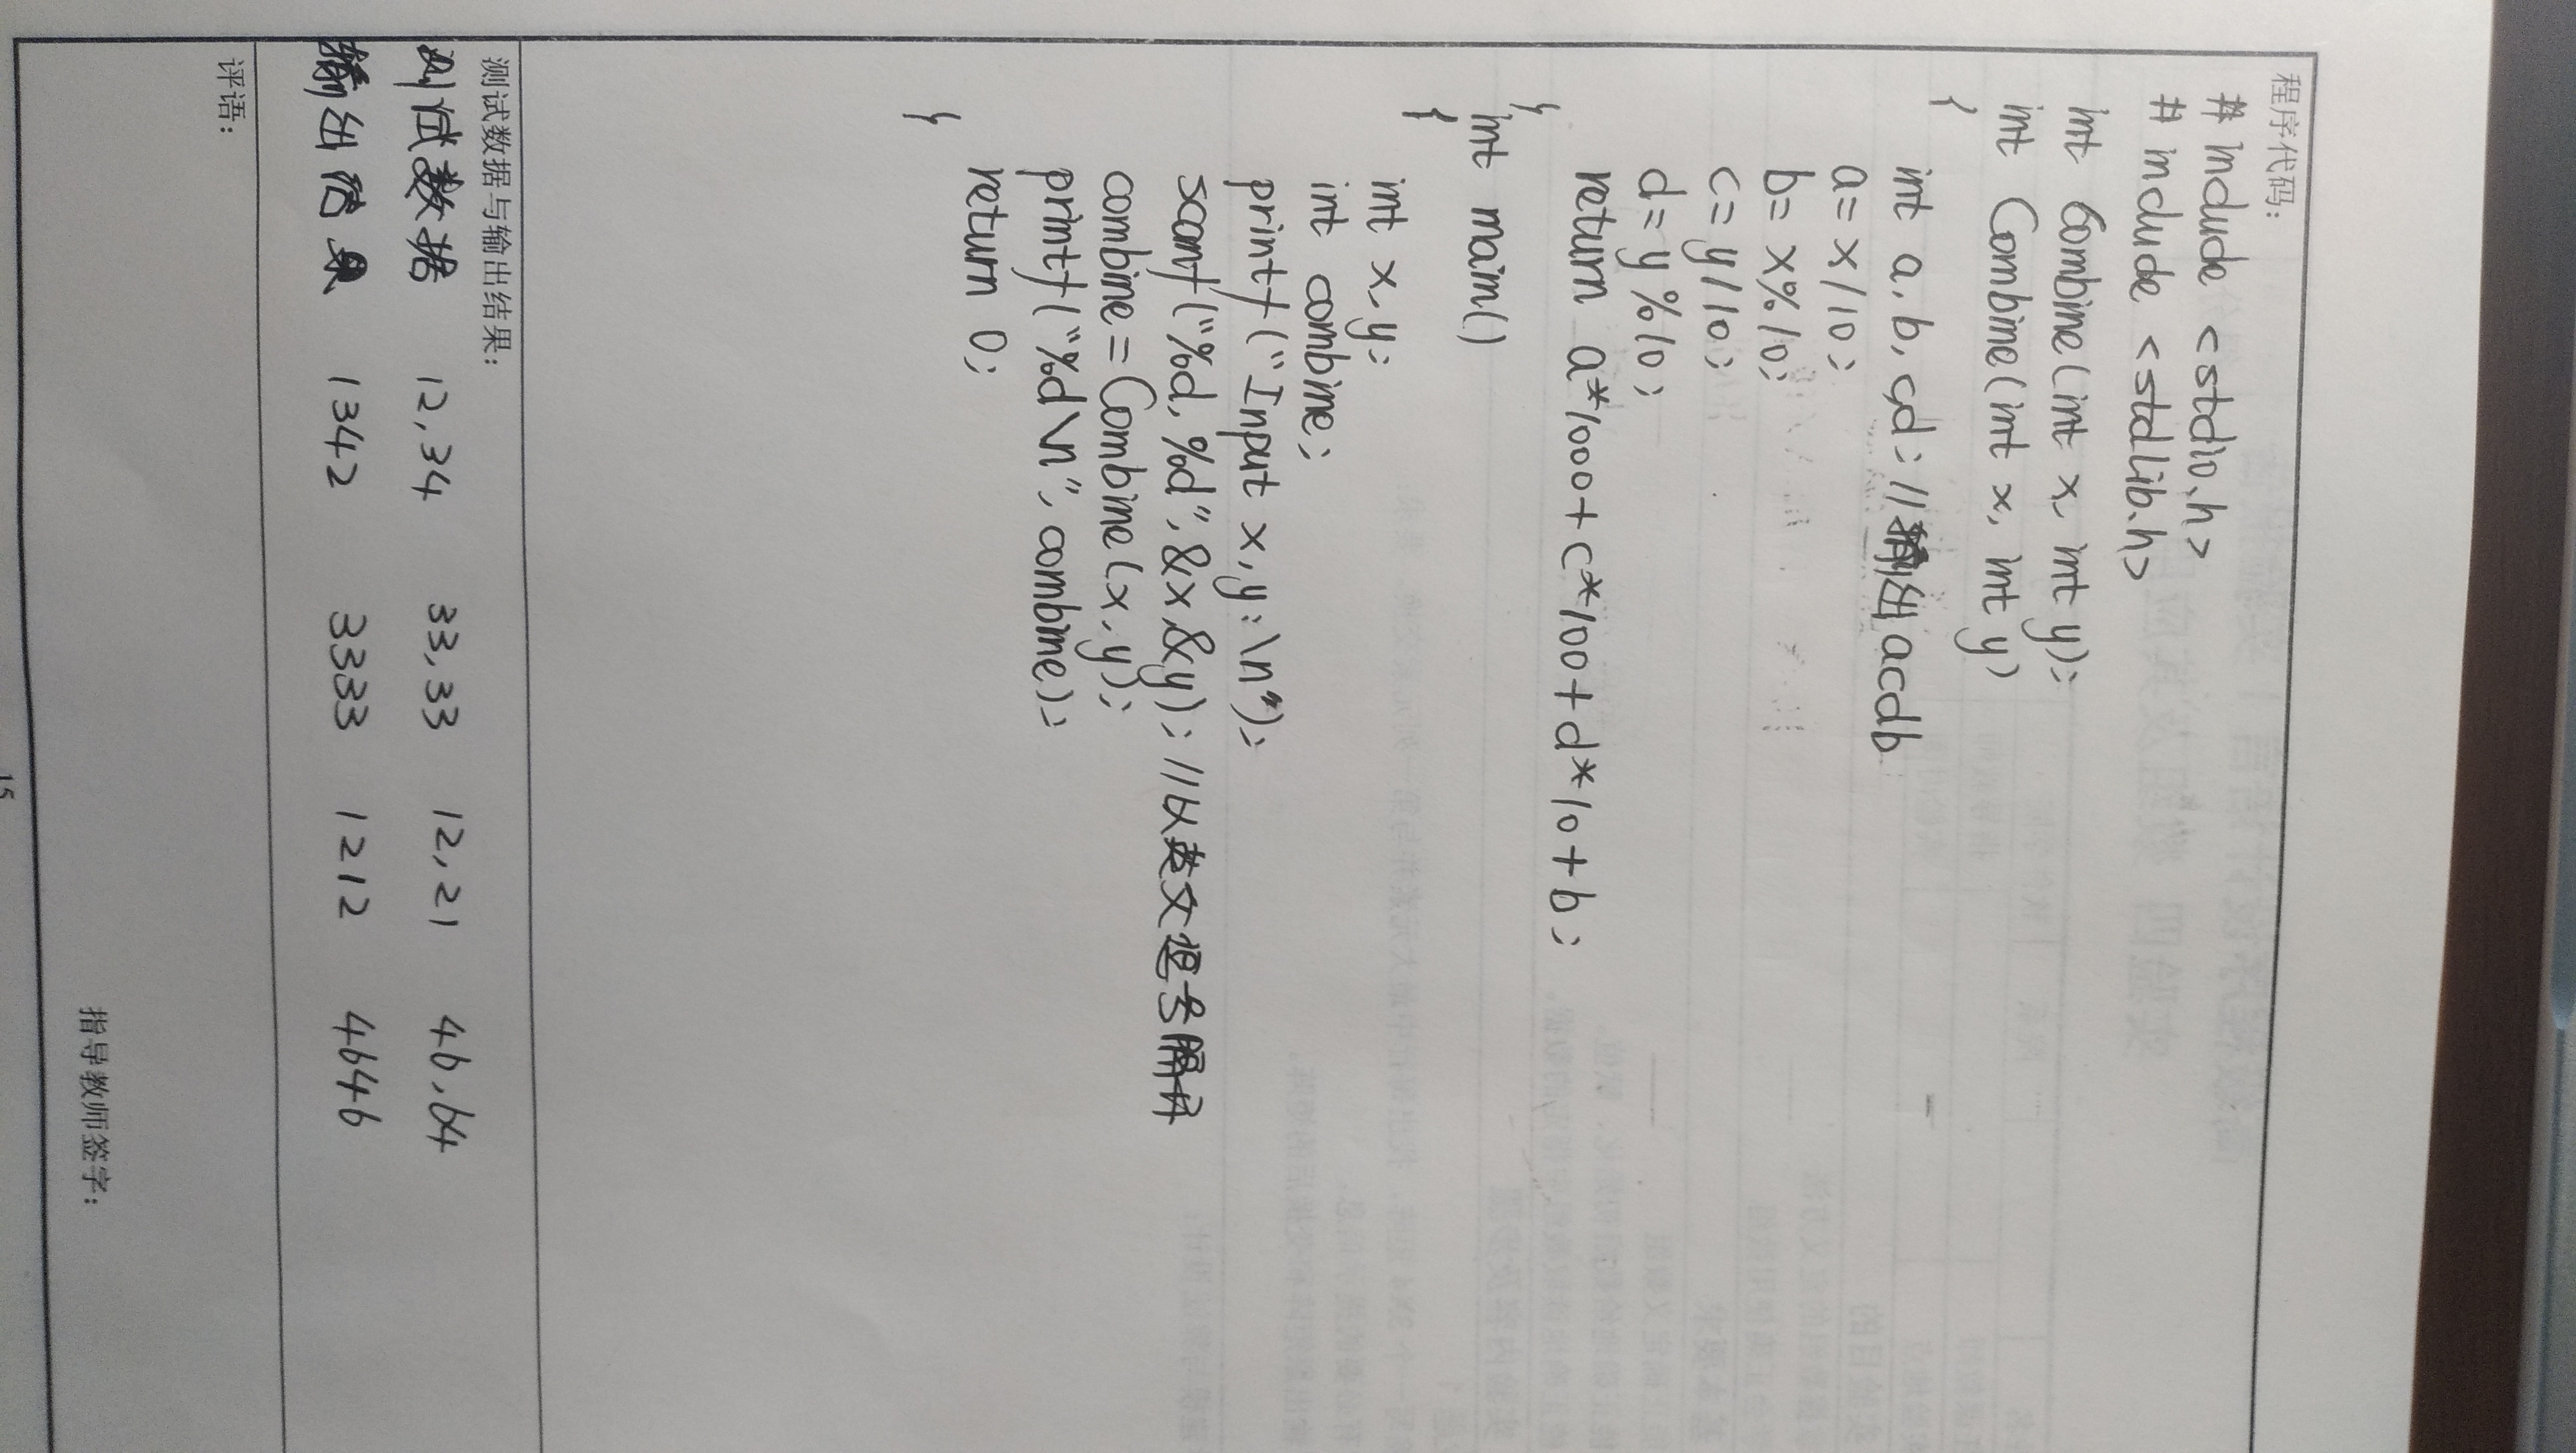 程序代码：
# include <stdio.h>
# include <stdLib.h>
int Combine(int x, int y);
int Combine(int x, int y)
{
int a, b, c,d; //输出acdb
a= x/10;
b= x%10;
c= y/10;
d= y%10;
return a*1000+c*100+d*10+b;
}
int main()
{
int x, y;
int combine;
printf("Input x, y:\n");
scanf("%d, %d", &x,&y); //以英文逗号隔开
combine = Combine(x, y);
printf("%d\n", combine);
return 0;
}
测试数据与输出结果：
测试数据 12,34 33,33 12,21 46,64
输出结果 1342 3333 1212 4646
评语：
指导教师签字：
15